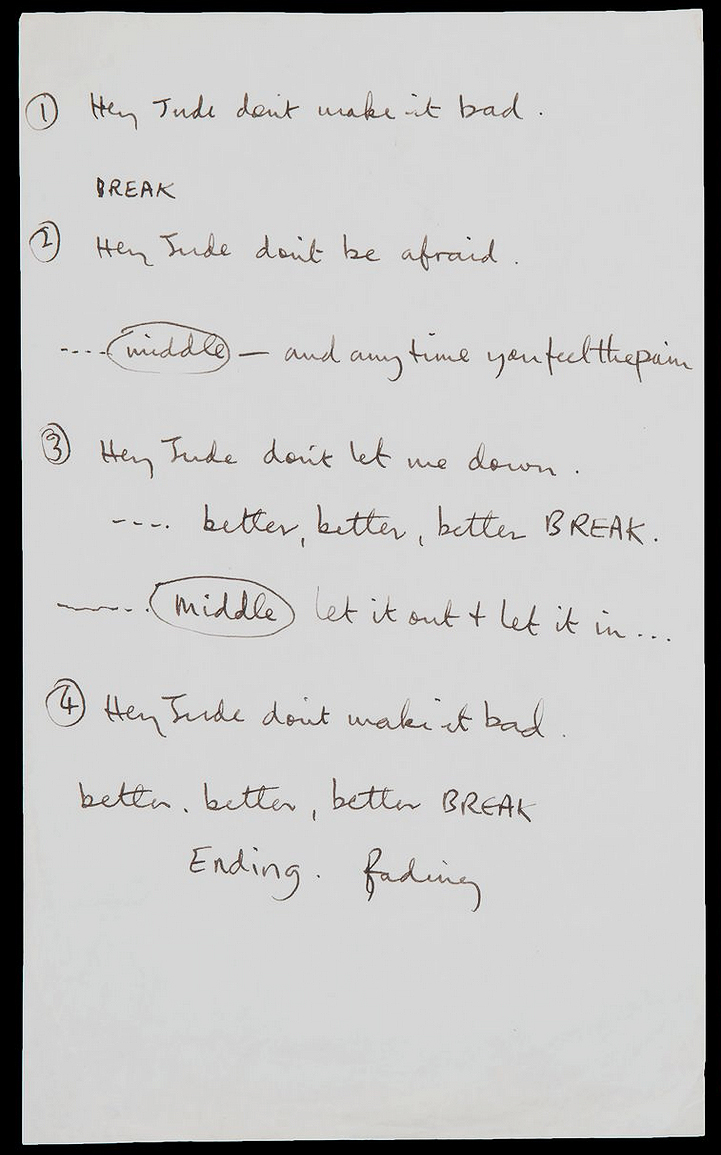 ① Hey Jude don't make it bad.
BREAK
② Hey Jude don't be afraid.
---- middle — and any time you feel the pain
③ Hey Jude don't let me down.
---- better, better, better BREAK.
------. middle let it out + let it in...
④ Hey Jude don't make it bad.
better. better, better BREAK
Ending. fading